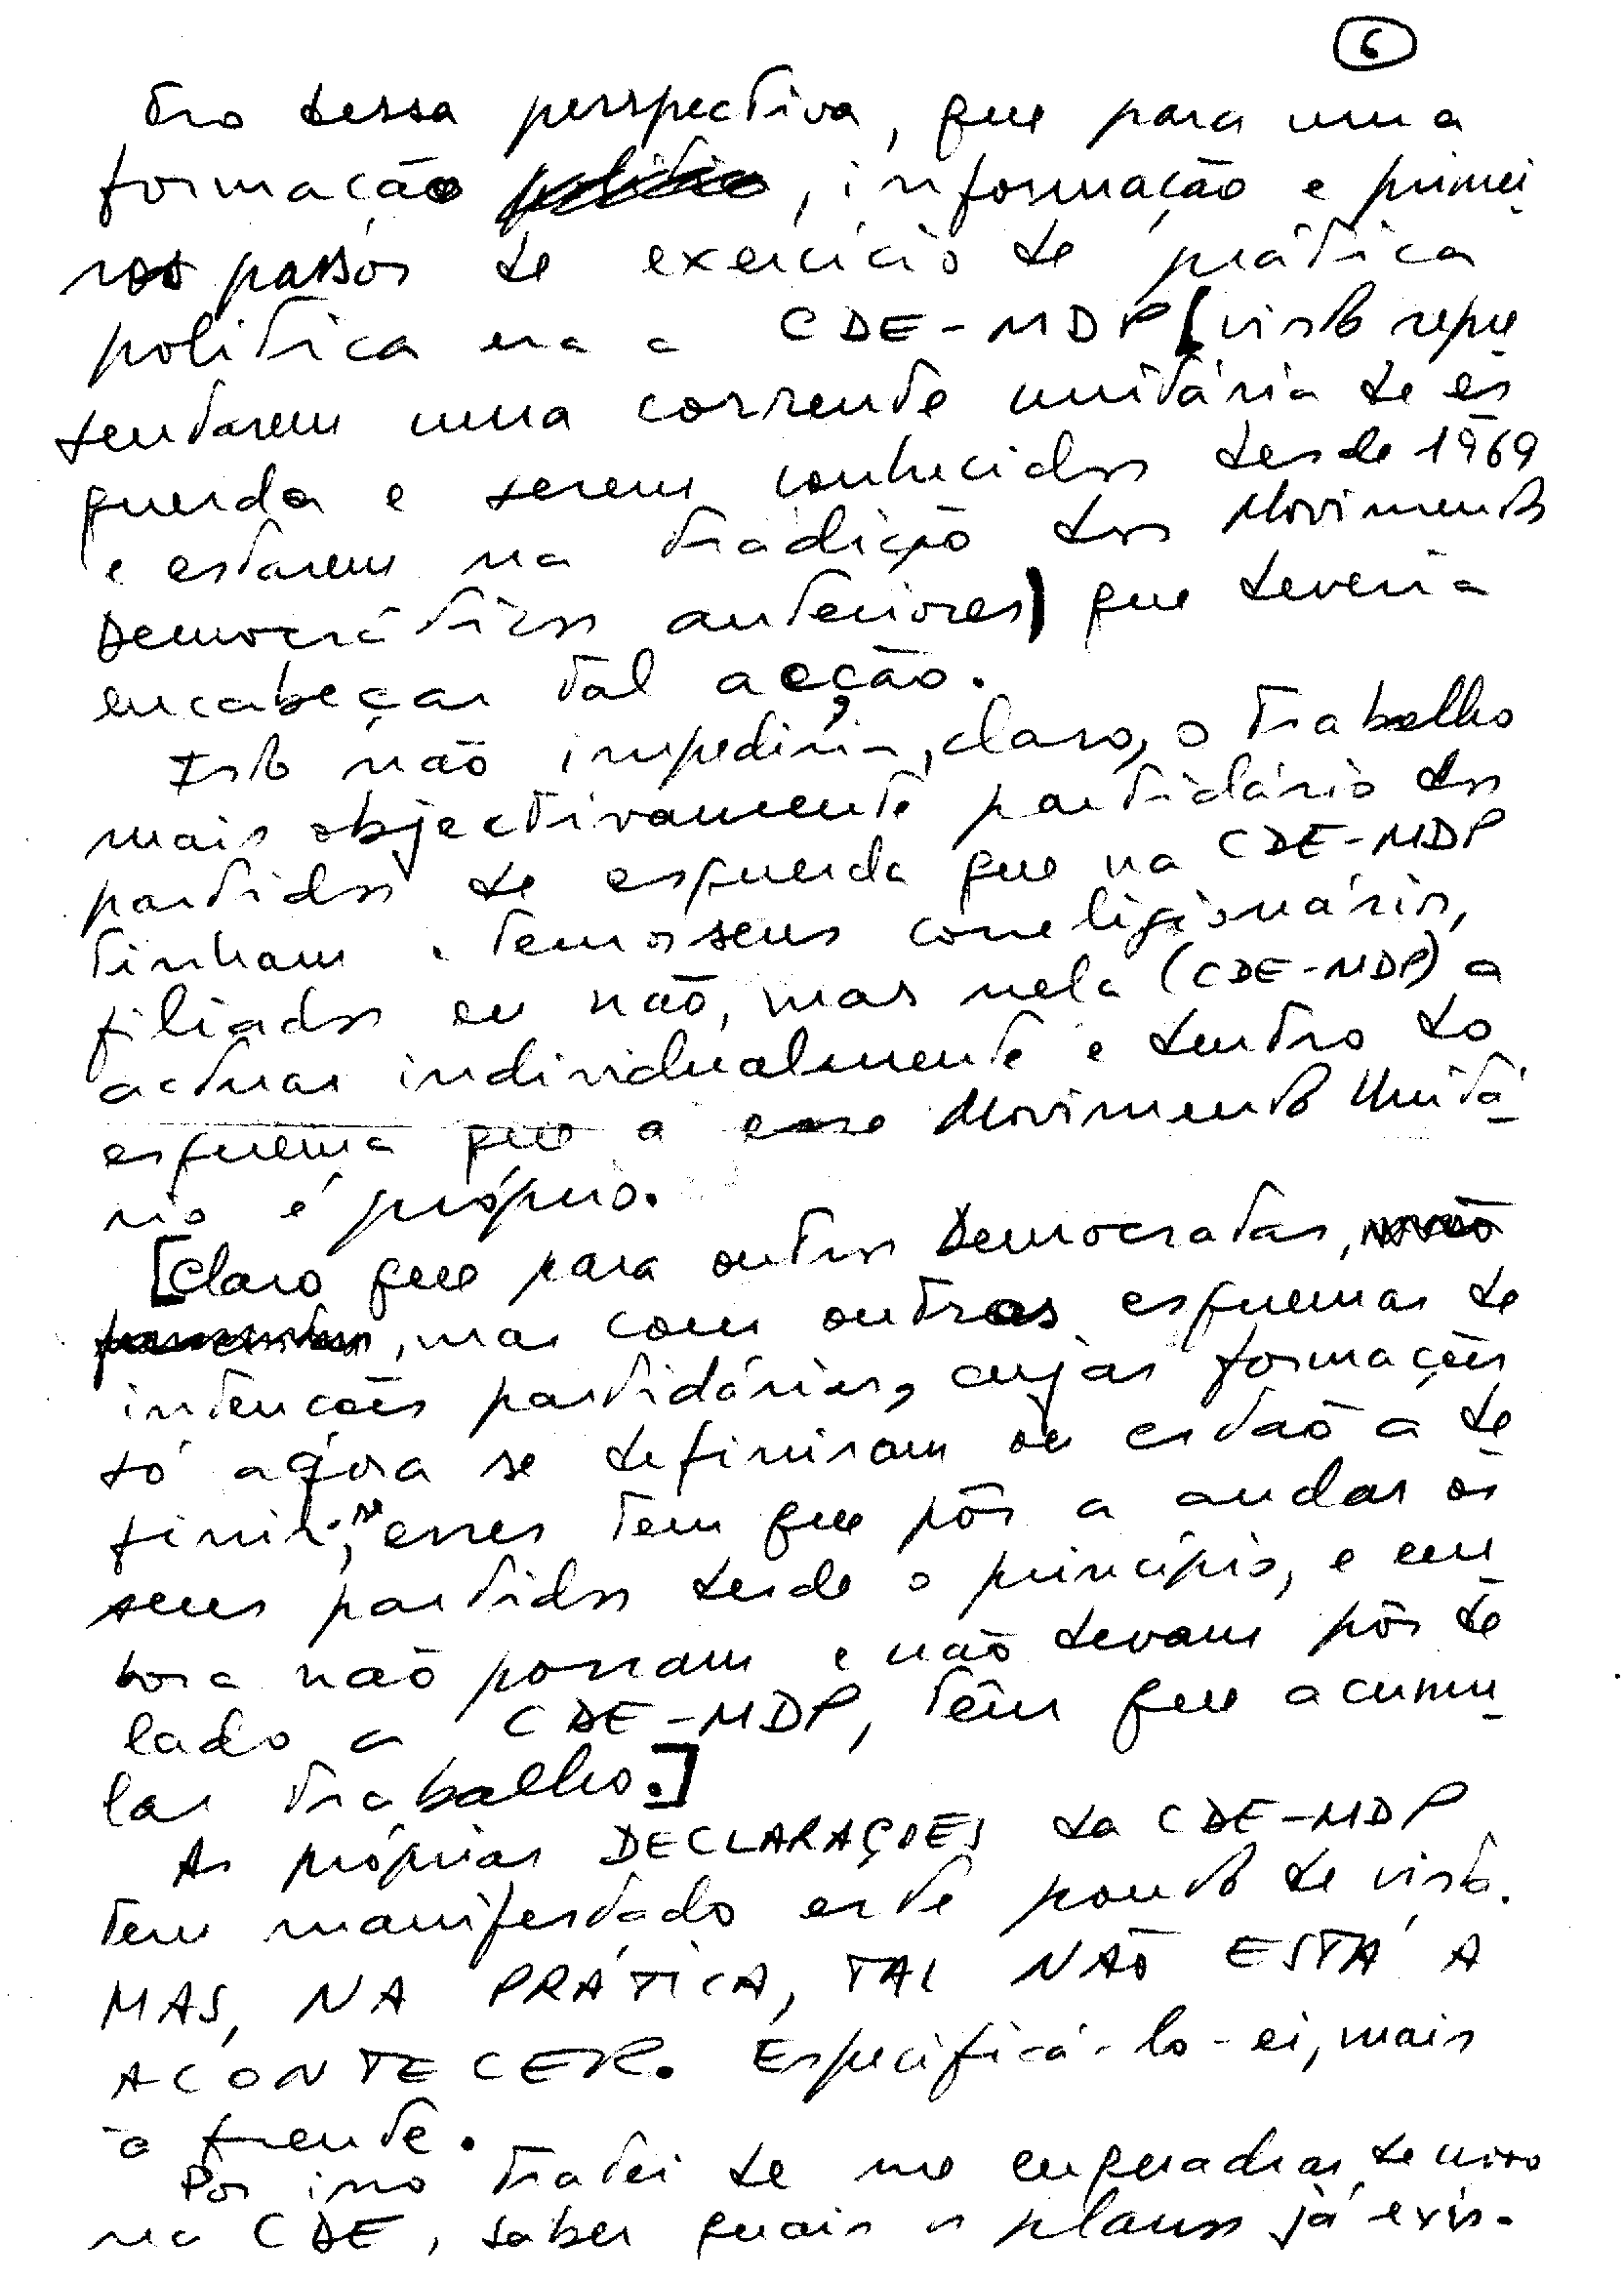 6
tro dessa perspectiva, que para uma
formação, informação e primei
ros passos de exercício de prática
política era a CDE-MDP (visto repre
sentarem uma corrente unitária de es
querda e serem conhecidos desde 1969
e estarem na tradição dos Movimentos
Democráticos anteriores) que deveria
encabeçar tal acção.
Isto não impediria, claro, o trabalho
mais objectivamente partidário dos
partidos de esquerda que na CDE-MDP
tinham e tem os seus correligionários,
filiados ou não, mas nela (CDE-MDP) a
actuar individualmente e dentro do
esquema que a esse Movimento Unitá-
rio é próprio.
[Claro que para outros Democratas,
, mas com outros esquemas de
intenções partidárias, cujas formações
só agora se definiram ou estão a de
finir-se; esses tem que pôr a andar os
seus partidos desde o princípio, e em
bora não possam e não devam pôr de
lado a CDE-MDP, têm que acumu
lar trabalho.]
As próprias DECLARAÇÕES da CDE-MDP
tem manifestado este ponto de vista.
MAS, NA PRÁTICA, TAL NÃO ESTÁ A
ACONTECER. Especificá-lo-ei, mais
à frente.
Por isso tratei de me enquadrar de novo
na CDE, saber quais os planos já exis-